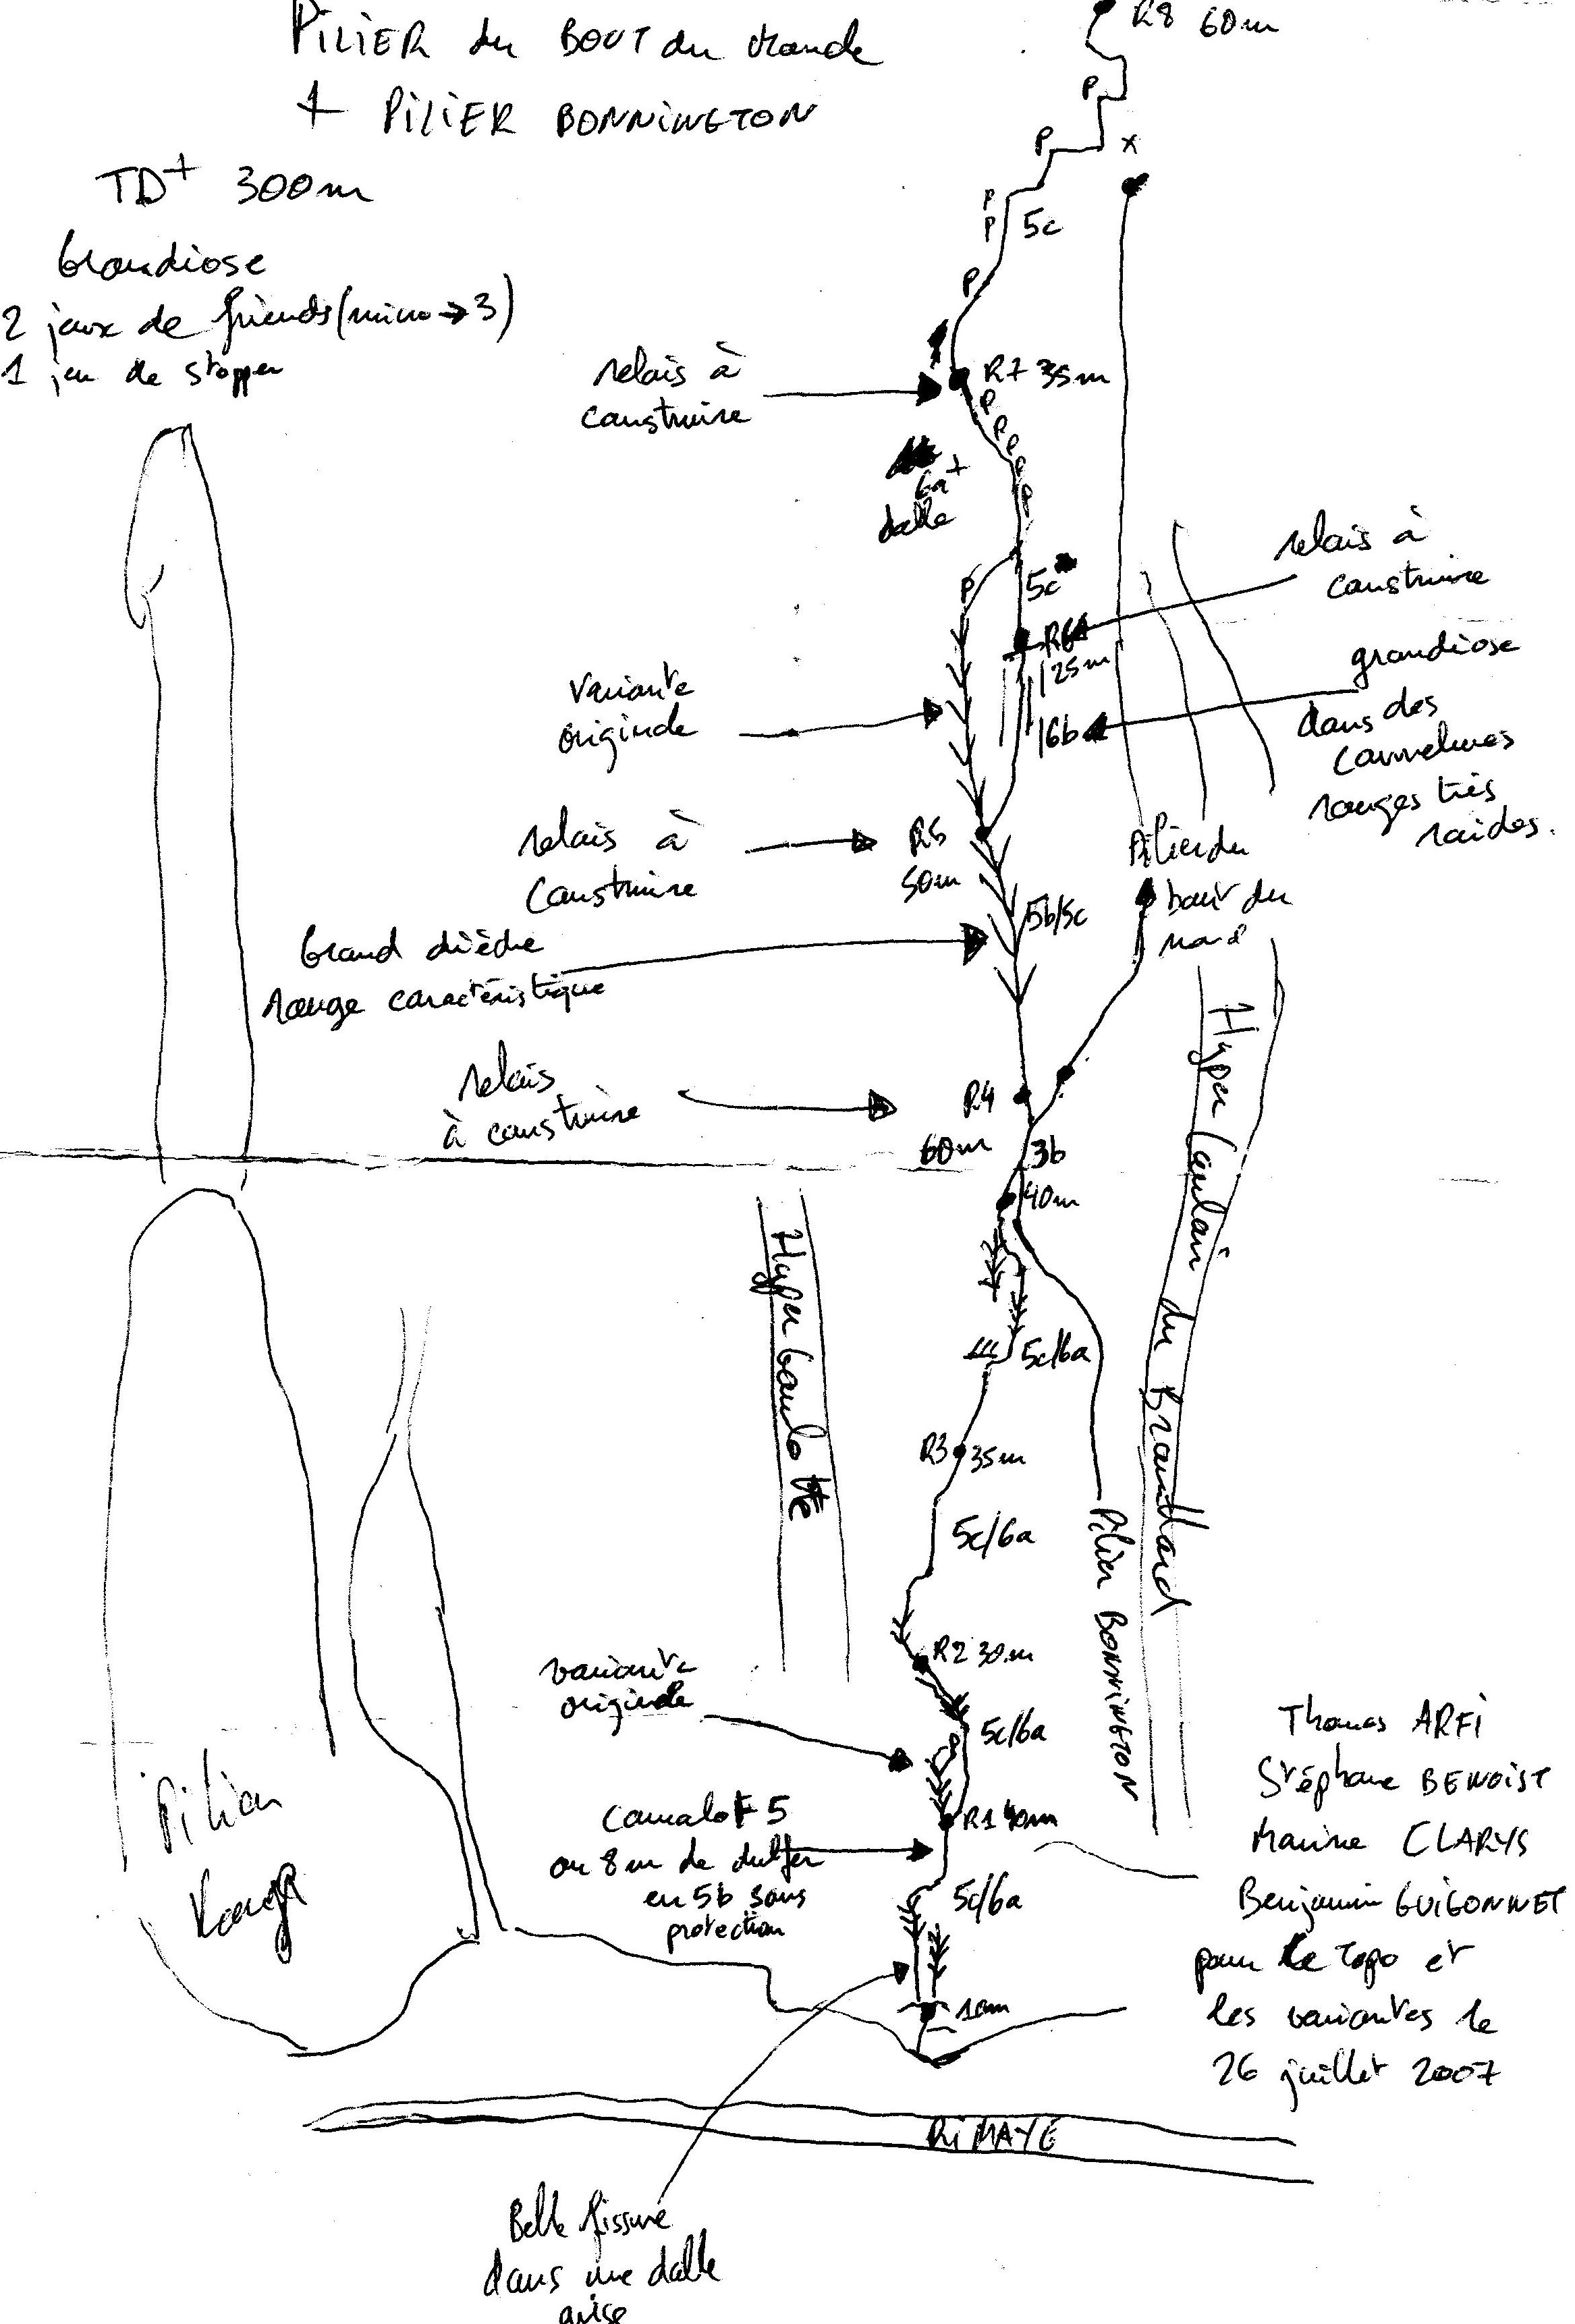 PILIER du BOUT du Monde
+ PILIER BONNINGTON
TD+ 300m
Grandiose
2 jeux de friends (micro → 3)
1 jeu de stopper
R8 60m
P
P
x
P
P
5c
P
relais à
construire
R7 35m
P
P
P
P
P
6a+
dalle
P
5c
relais à
construire
R6
25m
6b
grandiose
dans des
cannelures
rouges très
raides.
variante
originale
relais à
construire
R5
50m
5b/5c
Pilier du
bout du
Grand dièdre
rouge caractéristique
relais
à construire
R4
60m
3b
40m
5c/6a
Hyper Goulotte
Hyper Couloir du Brouillard
R3 35m
5c/6a
Pilier BONNINGTON
R2 30m
variante
originale
5c/6a
R1 40m
Camalot 5
ou 8m de dulfer
en 5b sans
protection
5c/6a
10m
Pilier
Rouge
Thomas ARFI
Stéphane BENOIST
Marine CLARYS
Benjamin GUIGONNET
pour le topo et
les variantes le
26 juillet 2007
RIMAYE
Belle fissure
dans une dalle
grise